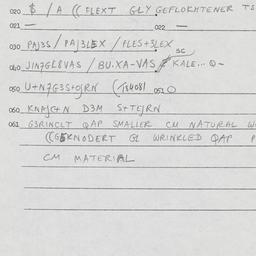 020 $ / A (( FLEXT GLY GEFLOCHTENER TS
021 — 022 —
030 PAJ3S / PAJ3LEX / PLES+3LEX
SG
040 JIN7GL8VAS / BU.XA-VAS KALE... Q-
050 U+N7G3S+GRN 051 O
060 KNAJC+N D3M S+TEJRN
061 G3RINGLT QAP SMALLER CM NATURAL
((GEKNODERT GL WRINKLED QAP
CM MATERIAL